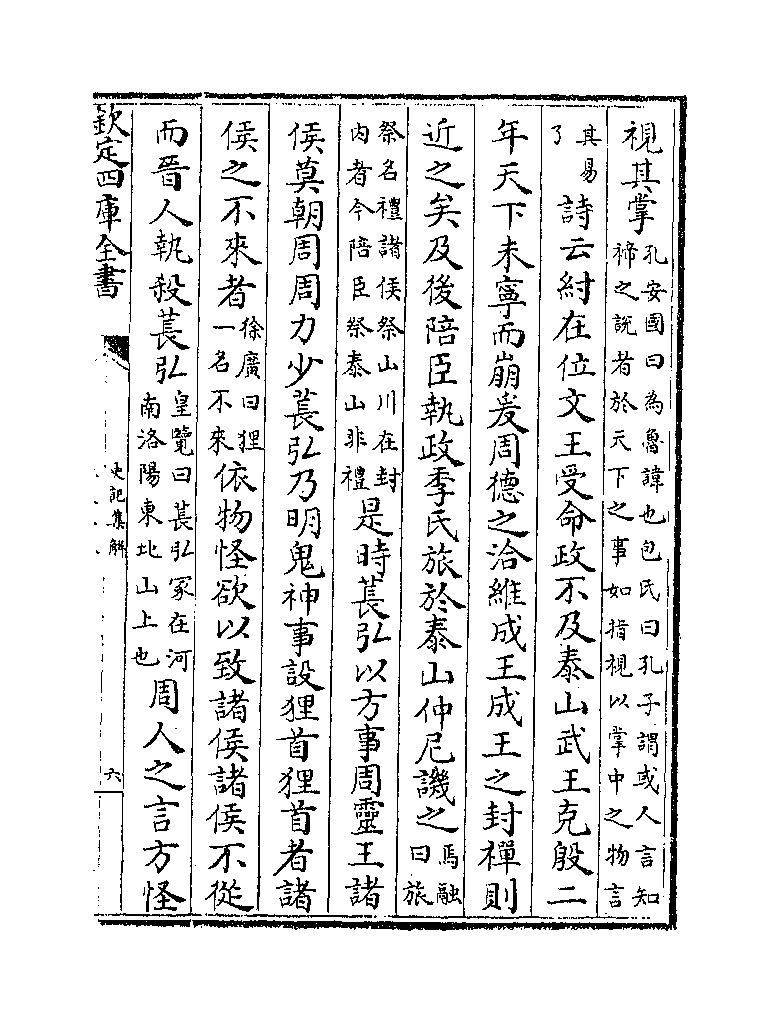 視其掌孔安國曰為魯諱也包氏曰孔子謂或人言知禘之説者於天下之事如指視以掌中之物言
其易了詩云紂在位文王受命政不及泰山武王克殷二
年天下未寧而崩爰周德之洽維成王成王之封禪則
近之矣及後陪臣執政季氏旅於泰山仲尼譏之馬融曰旅
祭名禮諸侯祭山川在封内者今陪臣祭泰山非禮是時萇弘以方事周靈王諸
侯莫朝周周力少萇弘乃明鬼神事設狸首狸首者諸
侯之不來者徐廣曰狸一名不來依物怪欲以致諸侯諸侯不從
而晉人執殺萇弘皇覽曰萇弘冢在河南洛陽東北山上也周人之言方怪
欽定四庫全書
史記集解
六